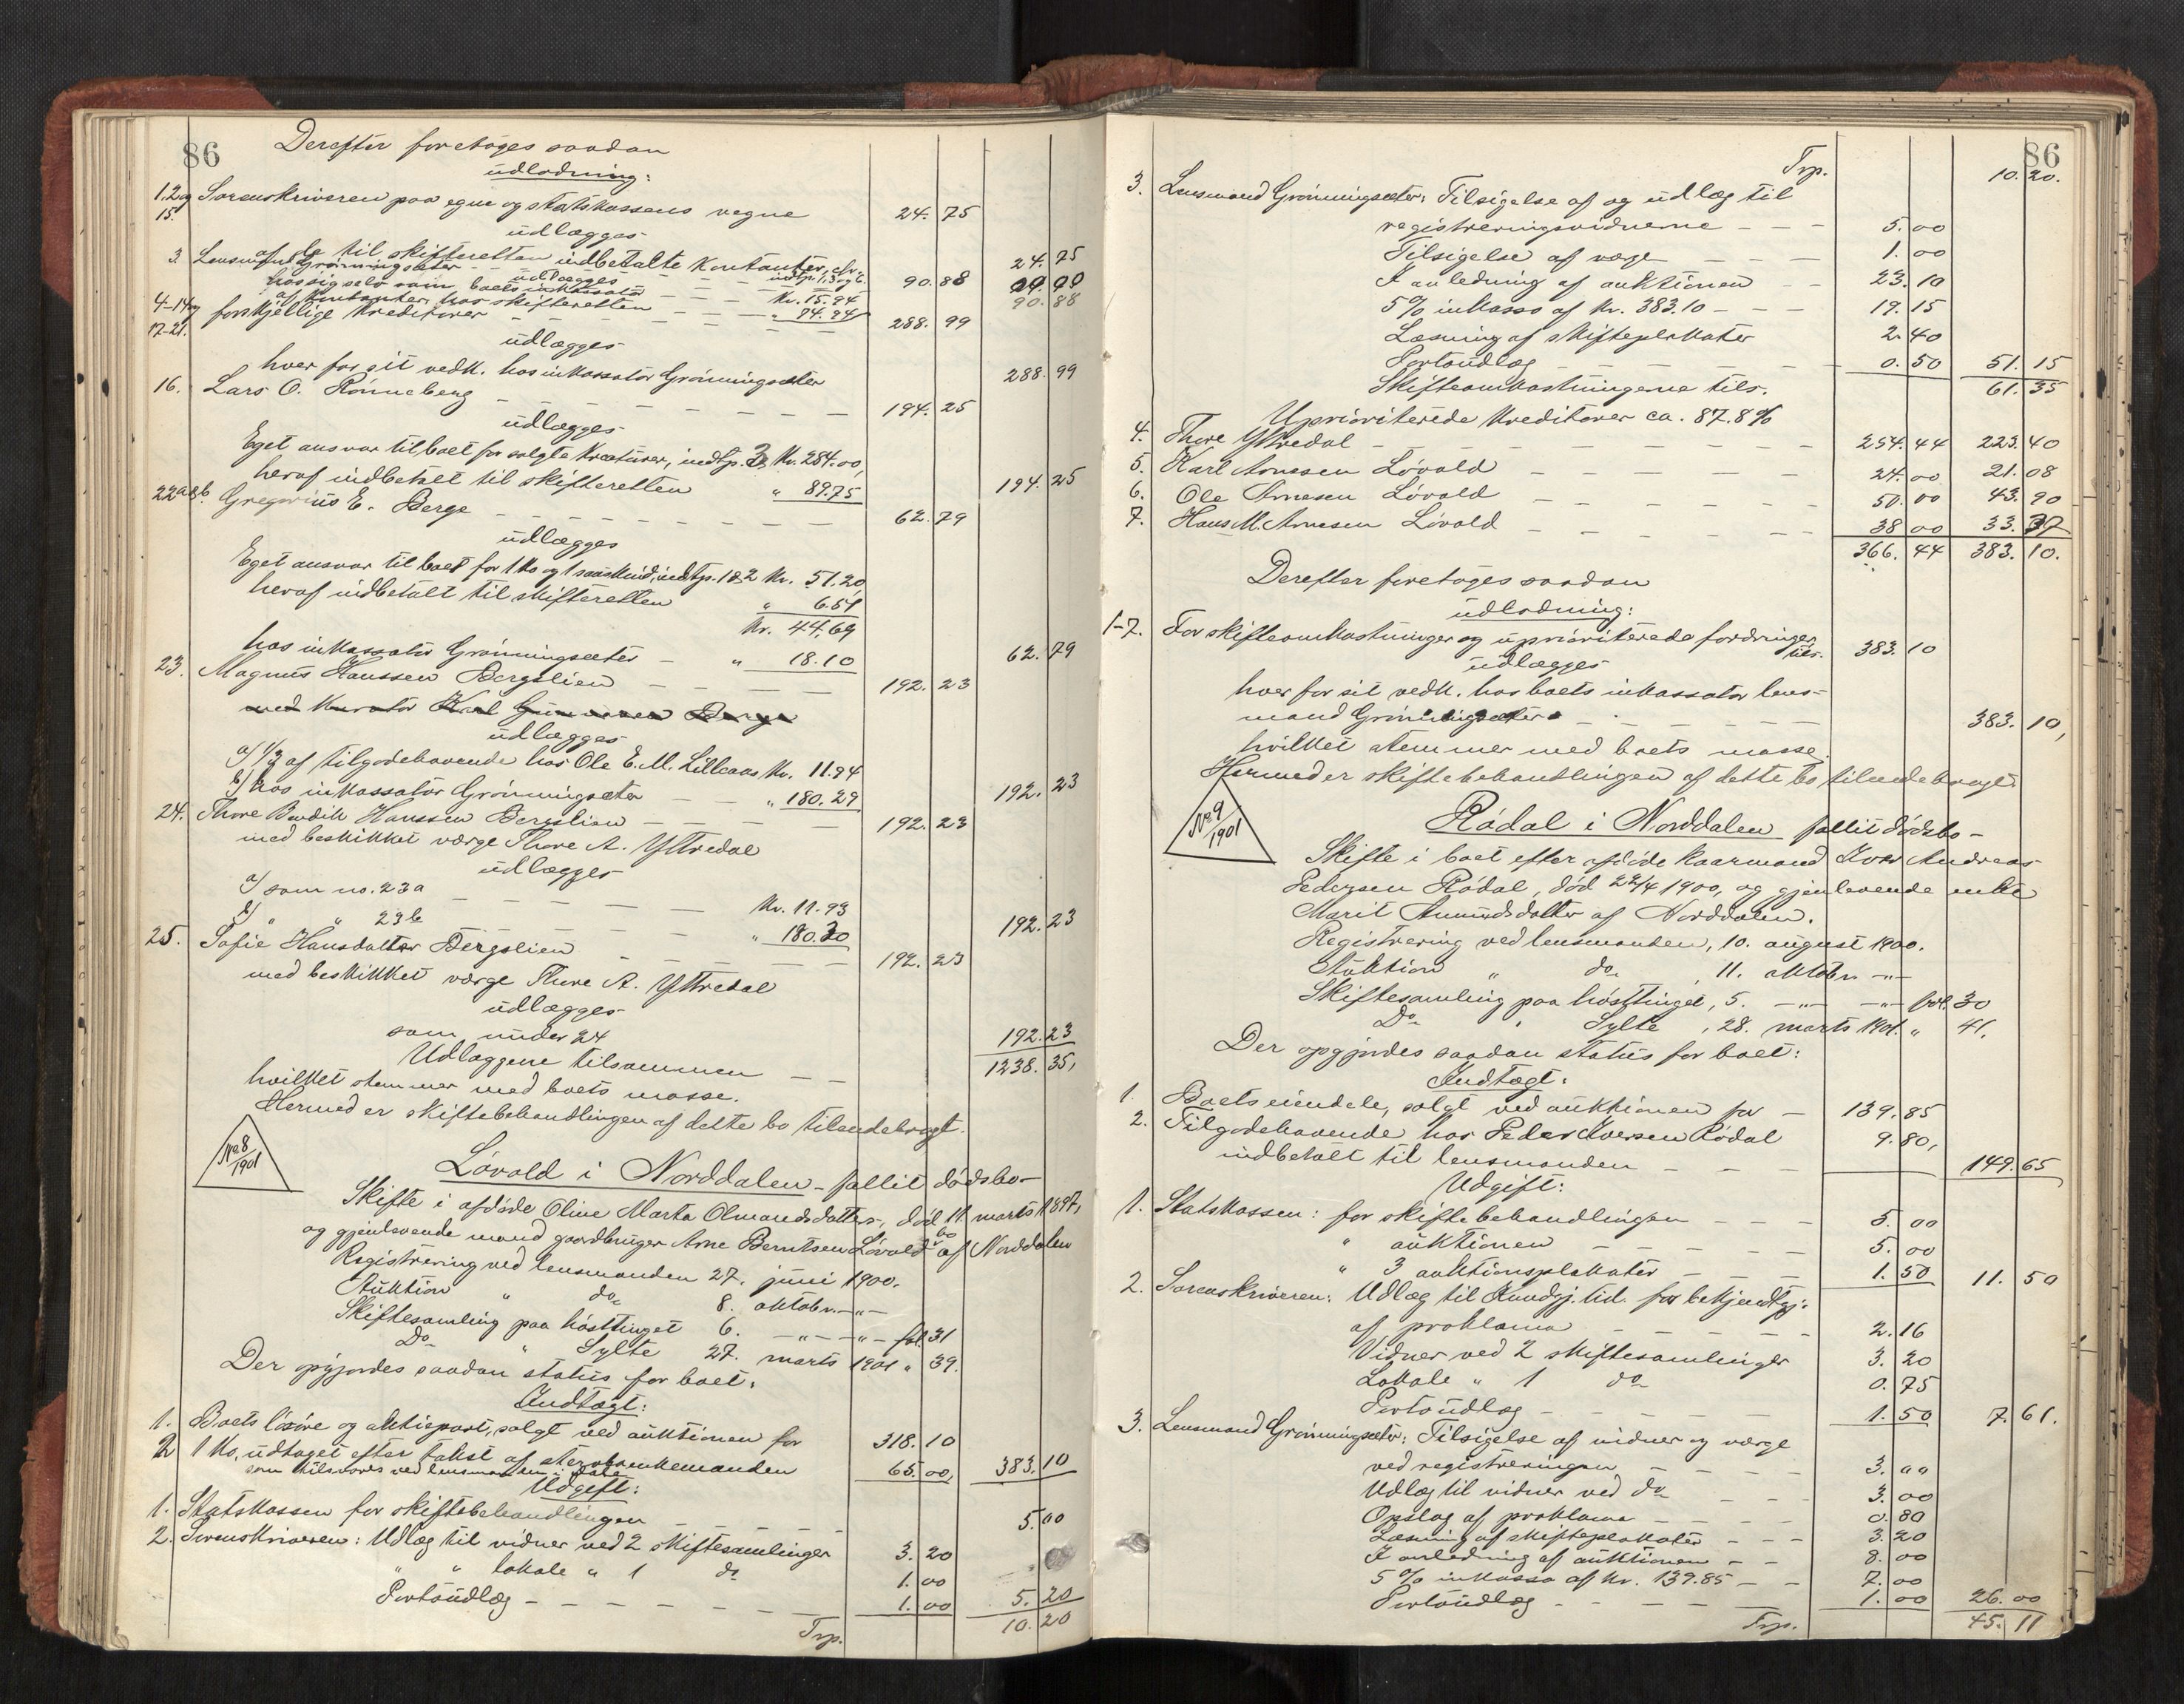 86
Derefter foretoges saadan
udlodning:
1.2 og 15. Sorenskriveren paa egne og statskassens vegne 24.75
udlægges
af de til skifteretten indbetalte kontanter, 24.75
3. Lensmand Grønningsæter 90.88
udlægges
hos sig selv som boets inkassator Kr. 15.94
af kontanter hos skifteretten " 74.94 90.88
4-14 og 17-21. forskjellige kreditorer 288.99
udlægges
hver for sit vedk. hos inkassator Grønningsæter 288.99
16. Lars O. Rønneberg 194.25
udlægges
Eget ansvar til boet for solgte kreaturer, indtp. 3, Kr. 284.00,
heraf indbetalt til skifteretten " 89.75 194.25
22a&b. Gregorius E. Berge 62.79
udlægges
Eget ansvar til boet for 1 ko og 1 saaskind, indtp. 1&2 Kr. 51.20
heraf indbetalt til skifteretten " 6.51
Kr. 44.69
hos inkassator Grønningsæter " 18.10 62.79
23. Magnus Hanssen Bergslien 192.23
med kurator Karl Gunnersen Berge
udlægges
a/ 1/3 af tilgodehavende hos Ole E. M. Lilleaas Kr. 11.94
b/ hos inkassator Grønningsæter " 180.29 192.23
24. Thore Bendik Hanssen Bergslien 192.23
med beskikket værge Thore A. Yttredal
udlægges
a/ som no. 23a Kr. 11.93
b/ " " 23b " 180.30 192.23
25. Sofie Hansdatter Bergslien 192.23
med beskikket værge Thore A. Yttredal
udlægges
som under 24 192.23
Udlæggene tilsammen 1238.35,
hvilket stemmer med boets masse.
Hermed er skiftebehandlingen af dette bo tilendebragt.
No 8/1901
Løvold i Norddalen - fallit dødsbo -
Skifte i afdøde Oline Marta Olmandsdatter, død 11 marts 1897,
og gjenlevende mand gaardbruger Arne Berntsen Løvolds bo af Norddalen
Registrering ved lensmanden 27. juni 1900.
Auktion " do 8. oktober -"-
Skiftesamling paa høsttinget 6. -"- -"- fol. 31
Do " Sylte 27. marts 1901 " 39.
Der opgjordes saadan status for boet:
Indtægt:
1. Boets løsøre og aktiepart, solgt ved auktionen for 318.10
2. 1 ko, udtaget efter takst af stervboenkemanden
som tilsvares ved lensmanden i Dale 65.00, 383.10
Udgift:
1. Statskassen for skiftebehandlingen 5.00
2. Sorenskriveren: Udlæg til vidner ved 2 skiftesamlinger 3.20
" " lokale " 1 do 1.00
Portoudlæg 1.00 5.20
Trp. 10.20
86
Trp. 10.20.
3. Lensmand Grønningsæter: Tilsigelse af og udlæg til
registreringsvidnerne 5.00
Tilsigelse af værge 1.00
I anledning af auktionen 23.10
5% inkasso af kr. 383.10 19.15
Læsning af skifteplakater 2.40
Portoudlæg 0.50 51.15
Skifteomkostningerne tils. 61.35
Uprioriterede kreditorer ca. 87.8%
4. Thore Yttredal 254.44 223.40
5. Karl Arnesen Løvold 24.00 21.08
6. Ole Arnesen Løvold 50.00 43.90
7. Hans M. Arnesen Løvold 38.00 33.37
366.44 383.10.
Derefter foretoges saadan
udlodning:
1-7. For skifteomkostninger og uprioriterede fordringer tils. 383.10
udlægges
hver for sit vedk. hos boets inkassator lens-
mand Grønningsæter 383.10,
hvilket stemmer med boets masse.
Hermed er skiftebehandlingen af dette bo tilendebragt.
No 9/1901
Rødal i Norddalen fallit dødsbo -
Skifte i boet efter afdøde kaarmand Iver Andreas
Pedersen Rødal, død 22/4 1900, og gjenlevende enke
Marit Amundsdatter af Norddalen.
Registrering ved lensmanden, 10. august 1900.
Auktion " do , 11. oktober -"-
Skiftesamling paa høsttinget, 5. -"- -"- fol. 30
Do , Sylte , 28. marts 1901. " 41.
Der opgjordes saadan status for boet:
Indtægt:
1. Boets eiendele, solgt ved auktionen for 139.85
2. Tilgodehavende hos Peder Iversen Rødal 9.80,
indbetalt til lensmanden 149.65
Udgift:
1. Statskassen: for skiftebehandlingen 5.00
" auktionen 5.00
" 3 auktionsplakater 1.50 11.50
2. Sorenskriveren: Udlæg til Kundgj. tid. for bekjendtgj.
af proklama 2.16
Vidner ved 2 skiftesamlinger 3.20
Lokale " 1 do 0.75
Portoudlæg 1.50 7.61.
3. Lensmand Grønningsæter: Tilsigelse af vidner og værge
ved registreringen 3.00
Udlæg til vidner ved do 3.00
Opslag af proklama 0.80
Læsning af skifteplakater 3.20
I anledning af auktionen 8.00
5% inkasso af kr. 139.85 7.00
Portoudlæg 1.00 26.00
Trp. 45.11